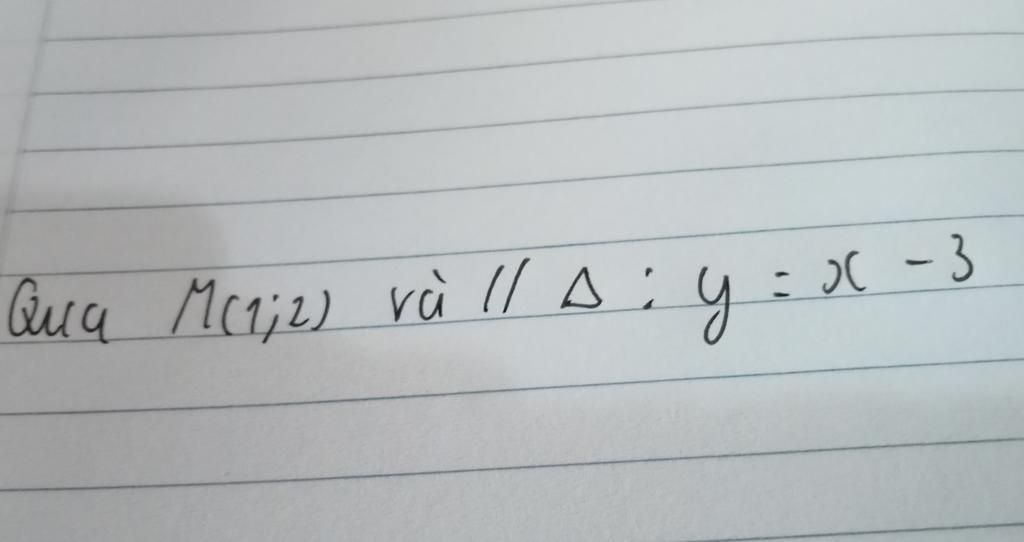 Qua M(1;2) và // Δ : y = x - 3